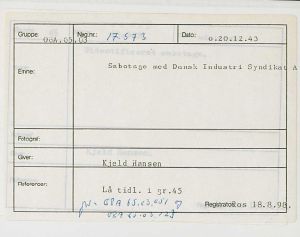 Gruppe: 08A.05.03 Neg.nr.: 17573 Dato: o.20.12.43
Emne: Sabotage mod Dansk Industri Syndikat A
Fotograf:
Giver: Kjeld Hansen
Referencer: Lå tidl. i gr.45
Registrator: os 18.8.98.